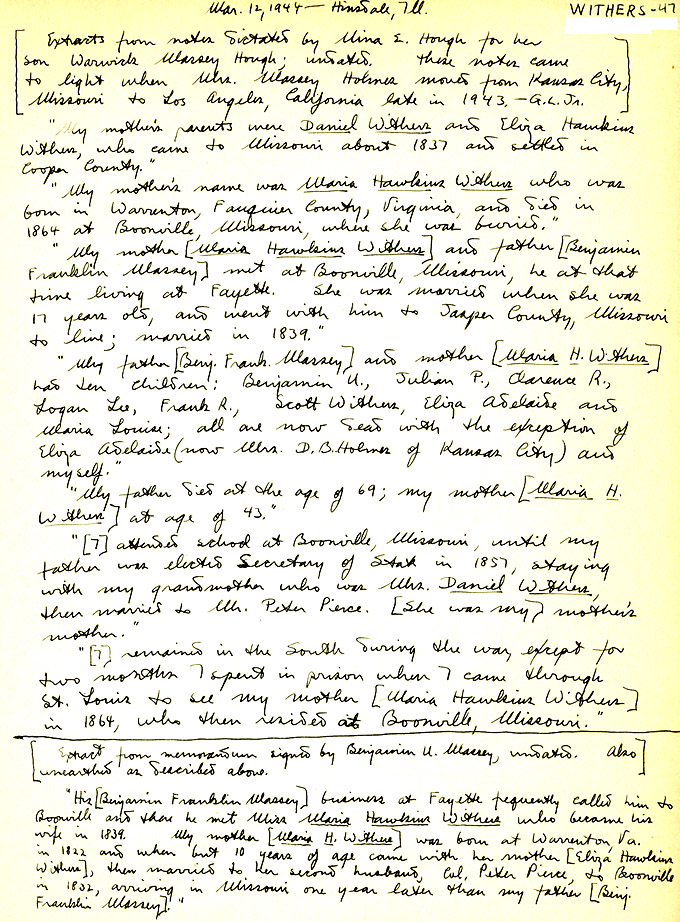 Mar. 12, 1944 — Hinsdale, Ill.
WITHERS-47
[Extracts from notes dictated by Mina E. Hough for her
son Warwick Massey Hough; undated. These notes came
to light when Mrs. Massey Holmes moved from Kansas City,
Missouri to Los Angeles, California late in 1943. — G.L.Jr.]
"My mother's parents were Daniel Withers and Eliza Hawkins
Withers, who came to Missouri about 1837 and settled in
Cooper County."
"My mother's name was Maria Hawkins Withers who was
born in Warrenton, Fauquier County, Virginia, and died in
1864 at Boonville, Missouri, where she was buried."
"My mother [Maria Hawkins Withers] and father [Benjamin
Franklin Massey] met at Boonville, Missouri, he at that
time living at Fayette. She was married when she was
17 years old, and went with him to Jasper County, Missouri
to live; married in 1839."
"My father [Benj. Frank. Massey] and mother [Maria H. Withers]
had ten children: Benjamin U., Julian P., Clarence R.,
Logan Lee, Frank R., Scott Withers, Eliza Adelaide and
Maria Louise; all are now dead with the exception of
Eliza Adelaide (now Mrs. D.B. Holmes of Kansas City) and
myself."
"My father died at the age of 69; my mother [Maria H.
Withers] at age of 43."
"[I] attended school at Boonville, Missouri, until my
father was elected Secretary of State in 1857, staying
with my grandmother who was Mrs. Daniel Withers,
then married to Mr. Peter Pierce. [She was my] mother's
mother."
"[I] remained in the South during the war, except for
two months I spent in prison when I came through
St. Louis to see my mother [Maria Hawkins Withers]
in 1864, who then resided at Boonville, Missouri."
[Extract from memorandum signed by Benjamin U. Massey, undated. Also
unearthed as described above.]
"His [Benjamin Franklin Massey] business at Fayette frequently called him to
Boonville and there he met Miss Maria Hawkins Withers who became his
wife in 1839. My mother [Maria H. Withers] was born at Warrenton, Va.
in 1822 and when but 10 years of age came with her mother [Eliza Hawkins
Withers], then married to her second husband, Col. Peter Pierce, to Boonville
in 1832, arriving in Missouri one year later than my father [Benj.
Franklin Massey]."